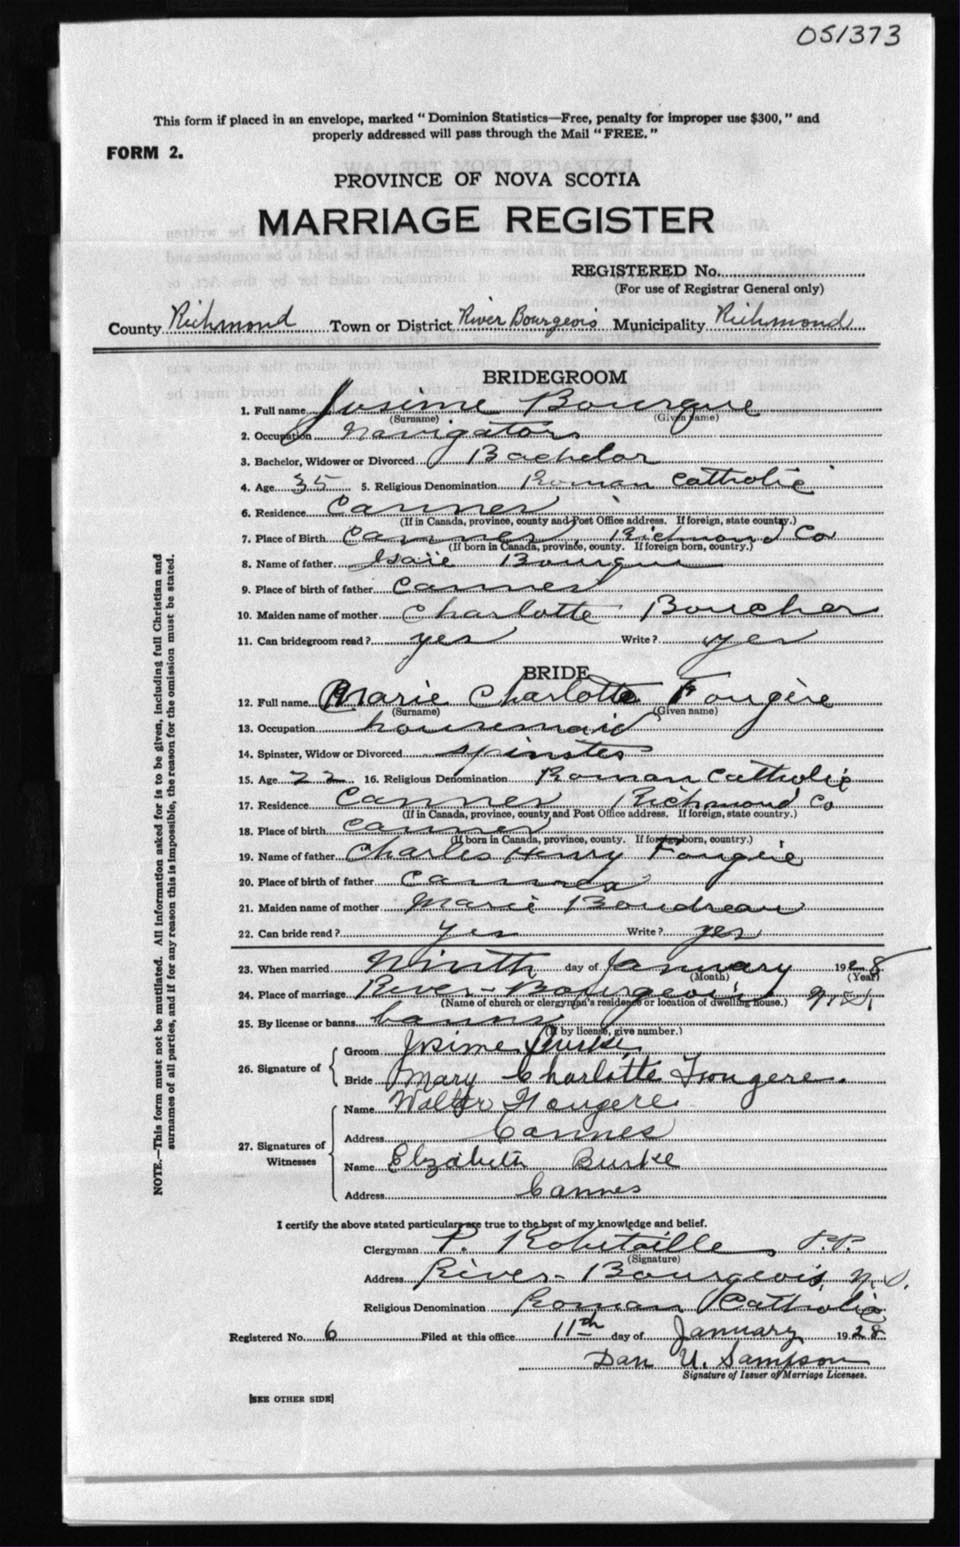 051373
This form if placed in an envelope, marked "Dominion Statistics—Free, penalty for improper use $300," and
properly addressed will pass through the Mail "FREE."
FORM 2.
PROVINCE OF NOVA SCOTIA
MARRIAGE REGISTER
REGISTERED No.
(For use of Registrar General only)
County Richmond Town or District River Bourgeois Municipality Richmond
BRIDEGROOM
1. Full name Josime Bourque
(Surname) (Given name)
2. Occupation Navigator
3. Bachelor, Widower or Divorced Bachelor
4. Age 35 5. Religious Denomination Roman Catholic
6. Residence Cannes
(If in Canada, province, county and Post Office address. If foreign, state country.)
7. Place of Birth Cannes, Richmond Co
(If born in Canada, province, county. If foreign born, country.)
8. Name of father Isaïe Bourque
9. Place of birth of father Cannes
10. Maiden name of mother Charlotte Boucher
11. Can bridegroom read? yes Write? yes
BRIDE
12. Full name Marie Charlotte Fougère
(Surname) (Given name)
13. Occupation housemaid
14. Spinster, Widow or Divorced spinster
15. Age 22 16. Religious Denomination Roman Catholic
17. Residence Cannes Richmond Co
(If in Canada, province, county and Post Office address. If foreign, state country.)
18. Place of birth Cannes
(If born in Canada, province, county. If foreign born, country.)
19. Name of father Charles Henry Fougère
20. Place of birth of father Cannes
21. Maiden name of mother Marie Boudreau
22. Can bride read? yes Write? yes
23. When married Ninth day of January 1928
(Month) (Year)
24. Place of marriage River-Bourgeois N.S.
(Name of church or clergyman's residence or location of dwelling house.)
25. By license or banns banns
(If by license, give number.)
26. Signature of
Groom Josime Burke
Bride Mary Charlotte Fougere.
27. Signatures of Witnesses
Name Walter Fougere
Address Cannes
Name Elzabeth Burke
Address Cannes
I certify the above stated particulars are true to the best of my knowledge and belief.
Clergyman P. Robitaille P.P.
(Signature)
Address River-Bourgeois, N.S.
Religious Denomination Roman Catholic
Registered No. 6 Filed at this office 11th day of January 1928
Dan U. Sampson
Signature of Issuer of Marriage Licenses.
[SEE OTHER SIDE]
NOTE.—This form must not be mutilated. All information asked for is to be given, including full Christian and
surnames of all parties, and if for any reason this is impossible, the reason for the omission must be stated.